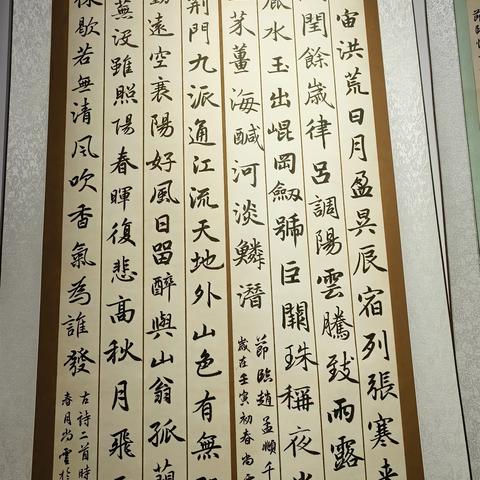 宙洪荒日月盈昃辰宿列張寒来
閏餘歲律呂調陽雲騰致雨露
水玉出崐岡劔號巨闕珠稱夜
芥薑海醎河淡鱗潛
節臨趙孟頫千
歲在壬寅初春尚
荊門九派通江流天地外山色有無
遠空襄陽好風日留醉與山翁孤
蕪没雖照陽春暉復悲高秋月飛
歇若無清風吹香氣為誰發
古詩二首時
春月尚雲於